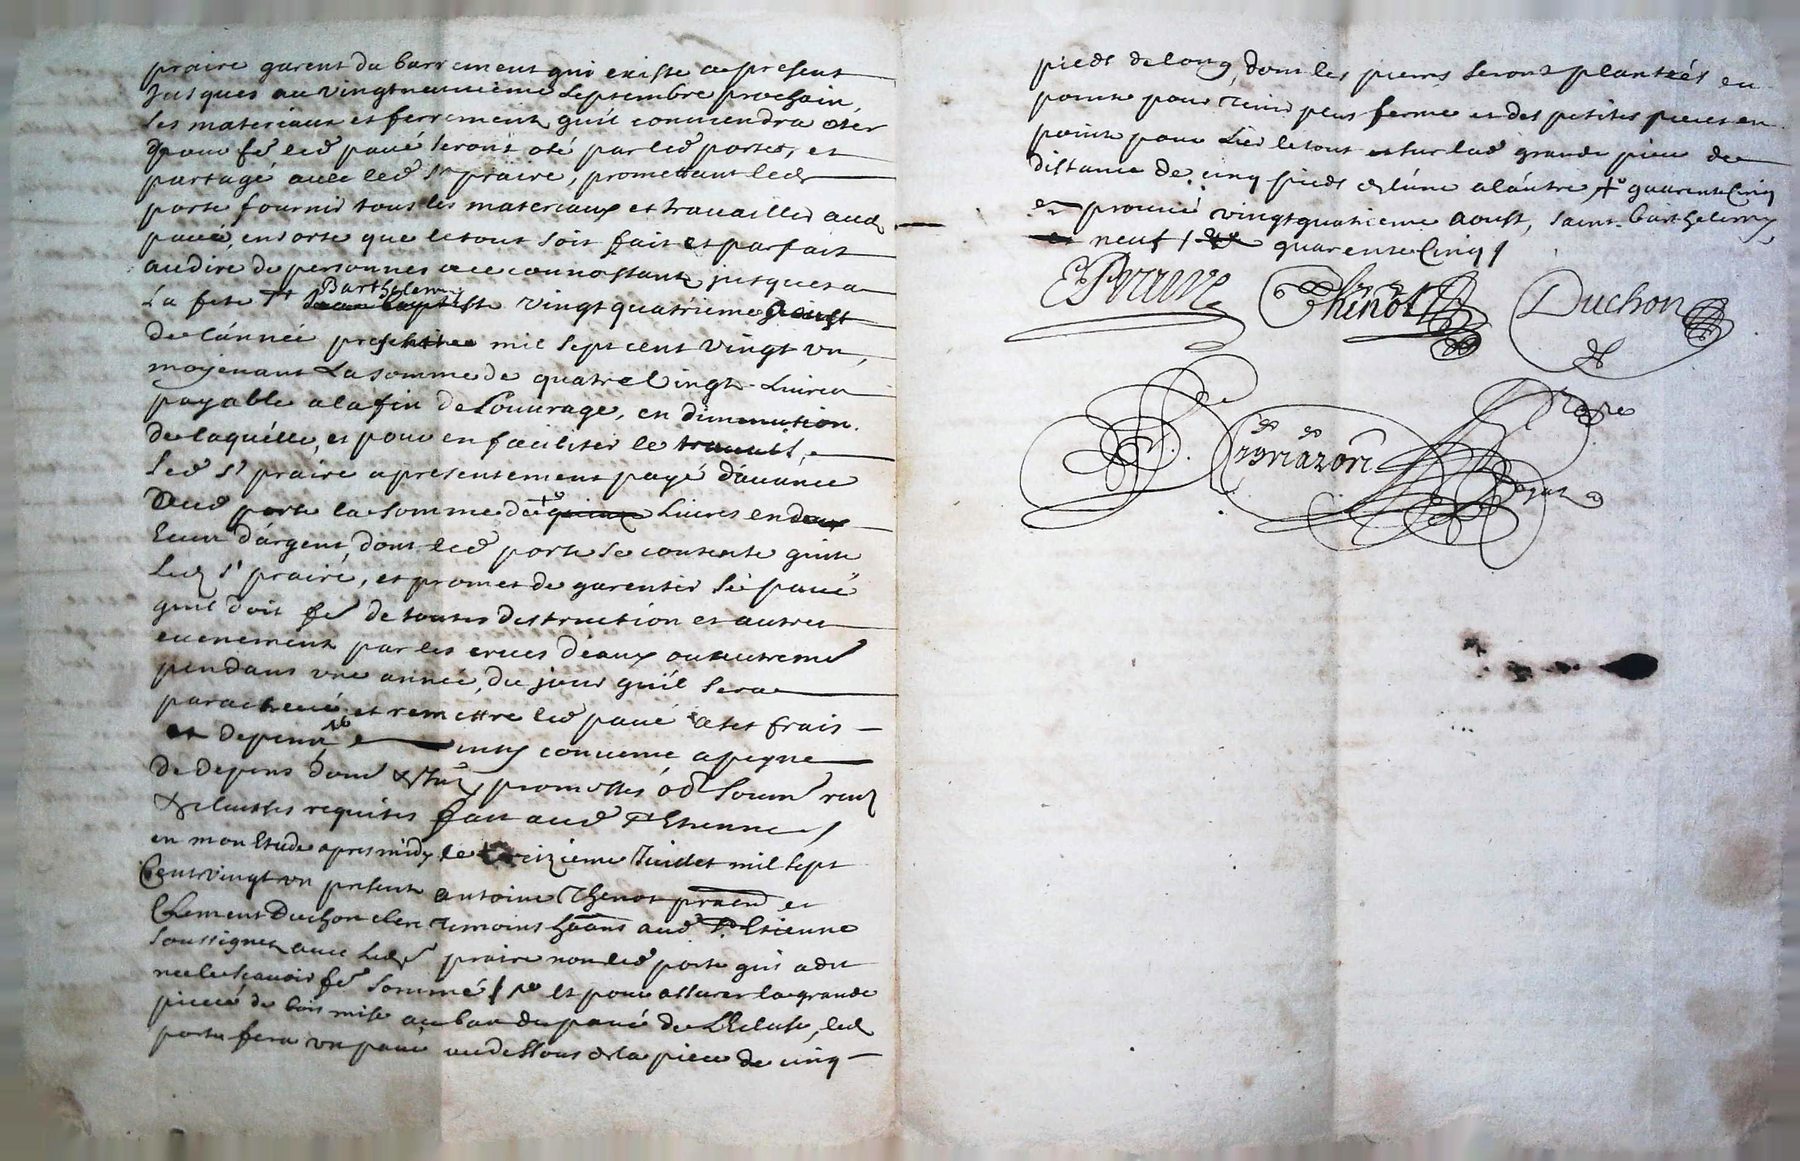 praire garent du barrement qui existe a present
jusques au vingtneuvieme septembre prochain,
les materiaux et ferrement quil conviendra oter
pour fe led pavé seront oté par led porte, et
partagé avec led Sr praire, promettant led
porte fournir tous les materiaux et travailler aud
pavé, ensorte que le tout soit fait et parfait
au dire de personnes a ce connoissant jusques a
La fete St Barthelemy vingt quatrieme aoust
de Lánneé presente mil sept cent vingt un,
moyenant La somme de quatre vingt Livres
payable a la fin de Louvrage, en diminution
de laquélle, et pour en faciliter le travail,
led Sr praire a presentement payé dávance
aud porte la somme de Livres en deux
Ecus dárgent, dont led porte se contente quitte
Led Sr praire, et promet de garentir le pavé
quil doit fe de toutes destruction et autres
evenement par les crues déaux ou autrement
pendant une année, du jour quil sera
parachevé et remettre led pavé a ses frais
et depens convenu a peyne
de depens dom promettes
Clauses requises fait aud St Etienne
en mon Etude apres midy le treizieme Juillet mil sept
Cent vingt un present antoine Thenot praen et
Clement Duchon clerc temoins hãans aud St Etienne
soussignez avec Led praire non led porte qui a dit
ne le scavoir fe sommé et pour assurer la grande
piece de bois mise au bau du pavé de LEcluse, led
porte fera un pavé au dessous de la piece de cinq
pieds de long, dont les pierres seront plantées en
pointe pour tenir plus ferme et des petites pieces en
pointe pour Lier le tout et sur lad grande piece de
distance de cinq pieds de lúne a láutre quarente Cinq
et prouvé vingtquatrieme aoust, Saint Barthelemy,
neuf quarente Cinq
Thenot
Duchon